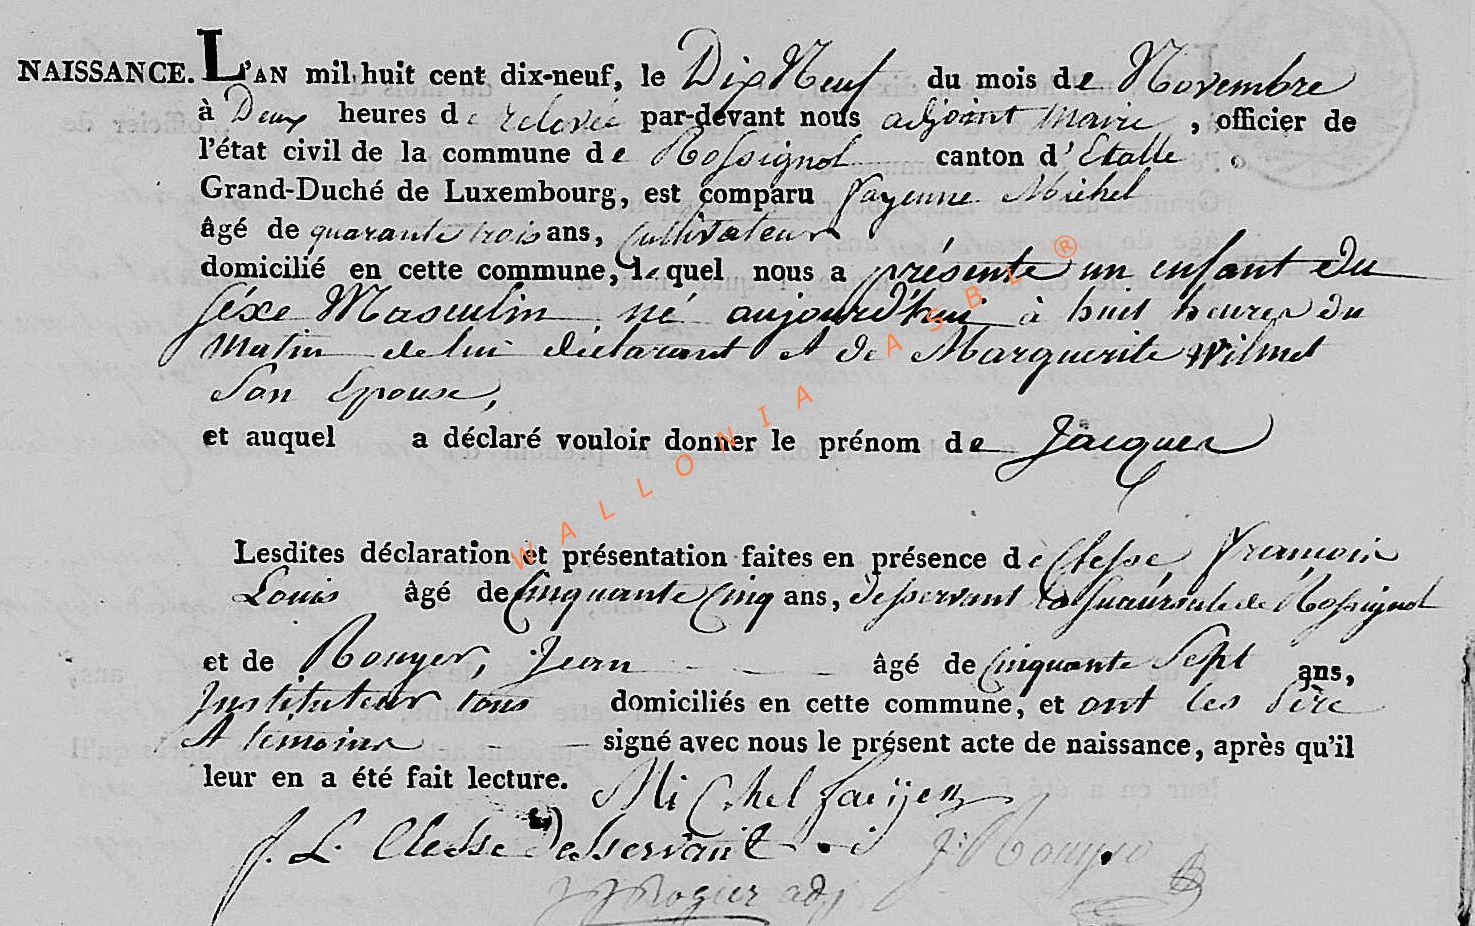 NAISSANCE. L'AN mil huit cent dix-neuf, le Dix Neuf du mois de Novembre
à Deux heures de relevée par-devant nous adjoint Maire, officier de
l'état civil de la commune de Rossignol canton d'Etalle
Grand-Duché de Luxembourg, est comparu fayenne Michel
âgé de quarante trois ans, Cultivateur
domicilié en cette commune, lequel nous a présenté un enfant du
séxe Masculin né aujourd'hui à huit heures du
Matin de lui déclarant et de Marguerite Wilmet
Son Epouse,
et auquel a déclaré vouloir donner le prénom de Jacques
Lesdites déclaration et présentation faites en présence de Clesse, françois
Louis âgé de Cinquante Cinq ans, desservant la succursale de Rossignol
et de Rouyer, Jean âgé de Cinquante Sept ans,
Instituteur tous domiciliés en cette commune, et ont les Père
et témoins signé avec nous le présent acte de naissance, après qu'il
leur en a été fait lecture. Michel faeijen
f. L. Clesse desservant J: Rouyer
Rogier adj
WALLONIA ASBL®